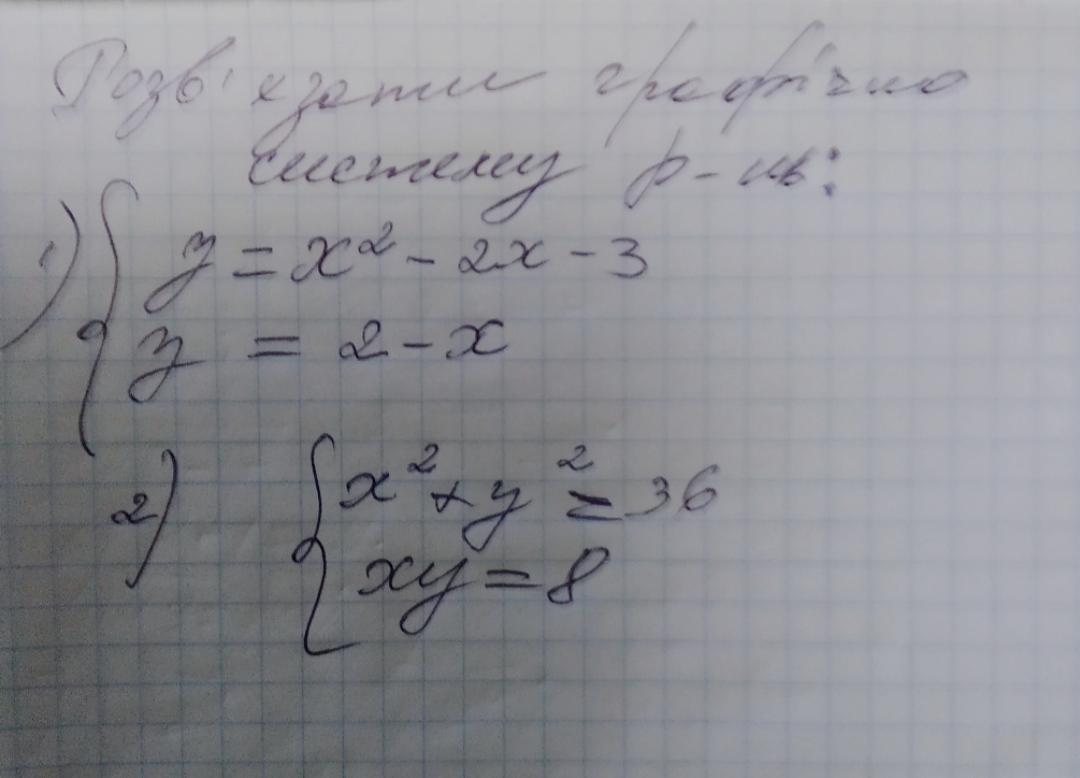 Розв'язати графічно
систему р-нь:
1) { y = x² - 2x - 3
y = 2 - x
2) { x² + y² = 36
xy = 8